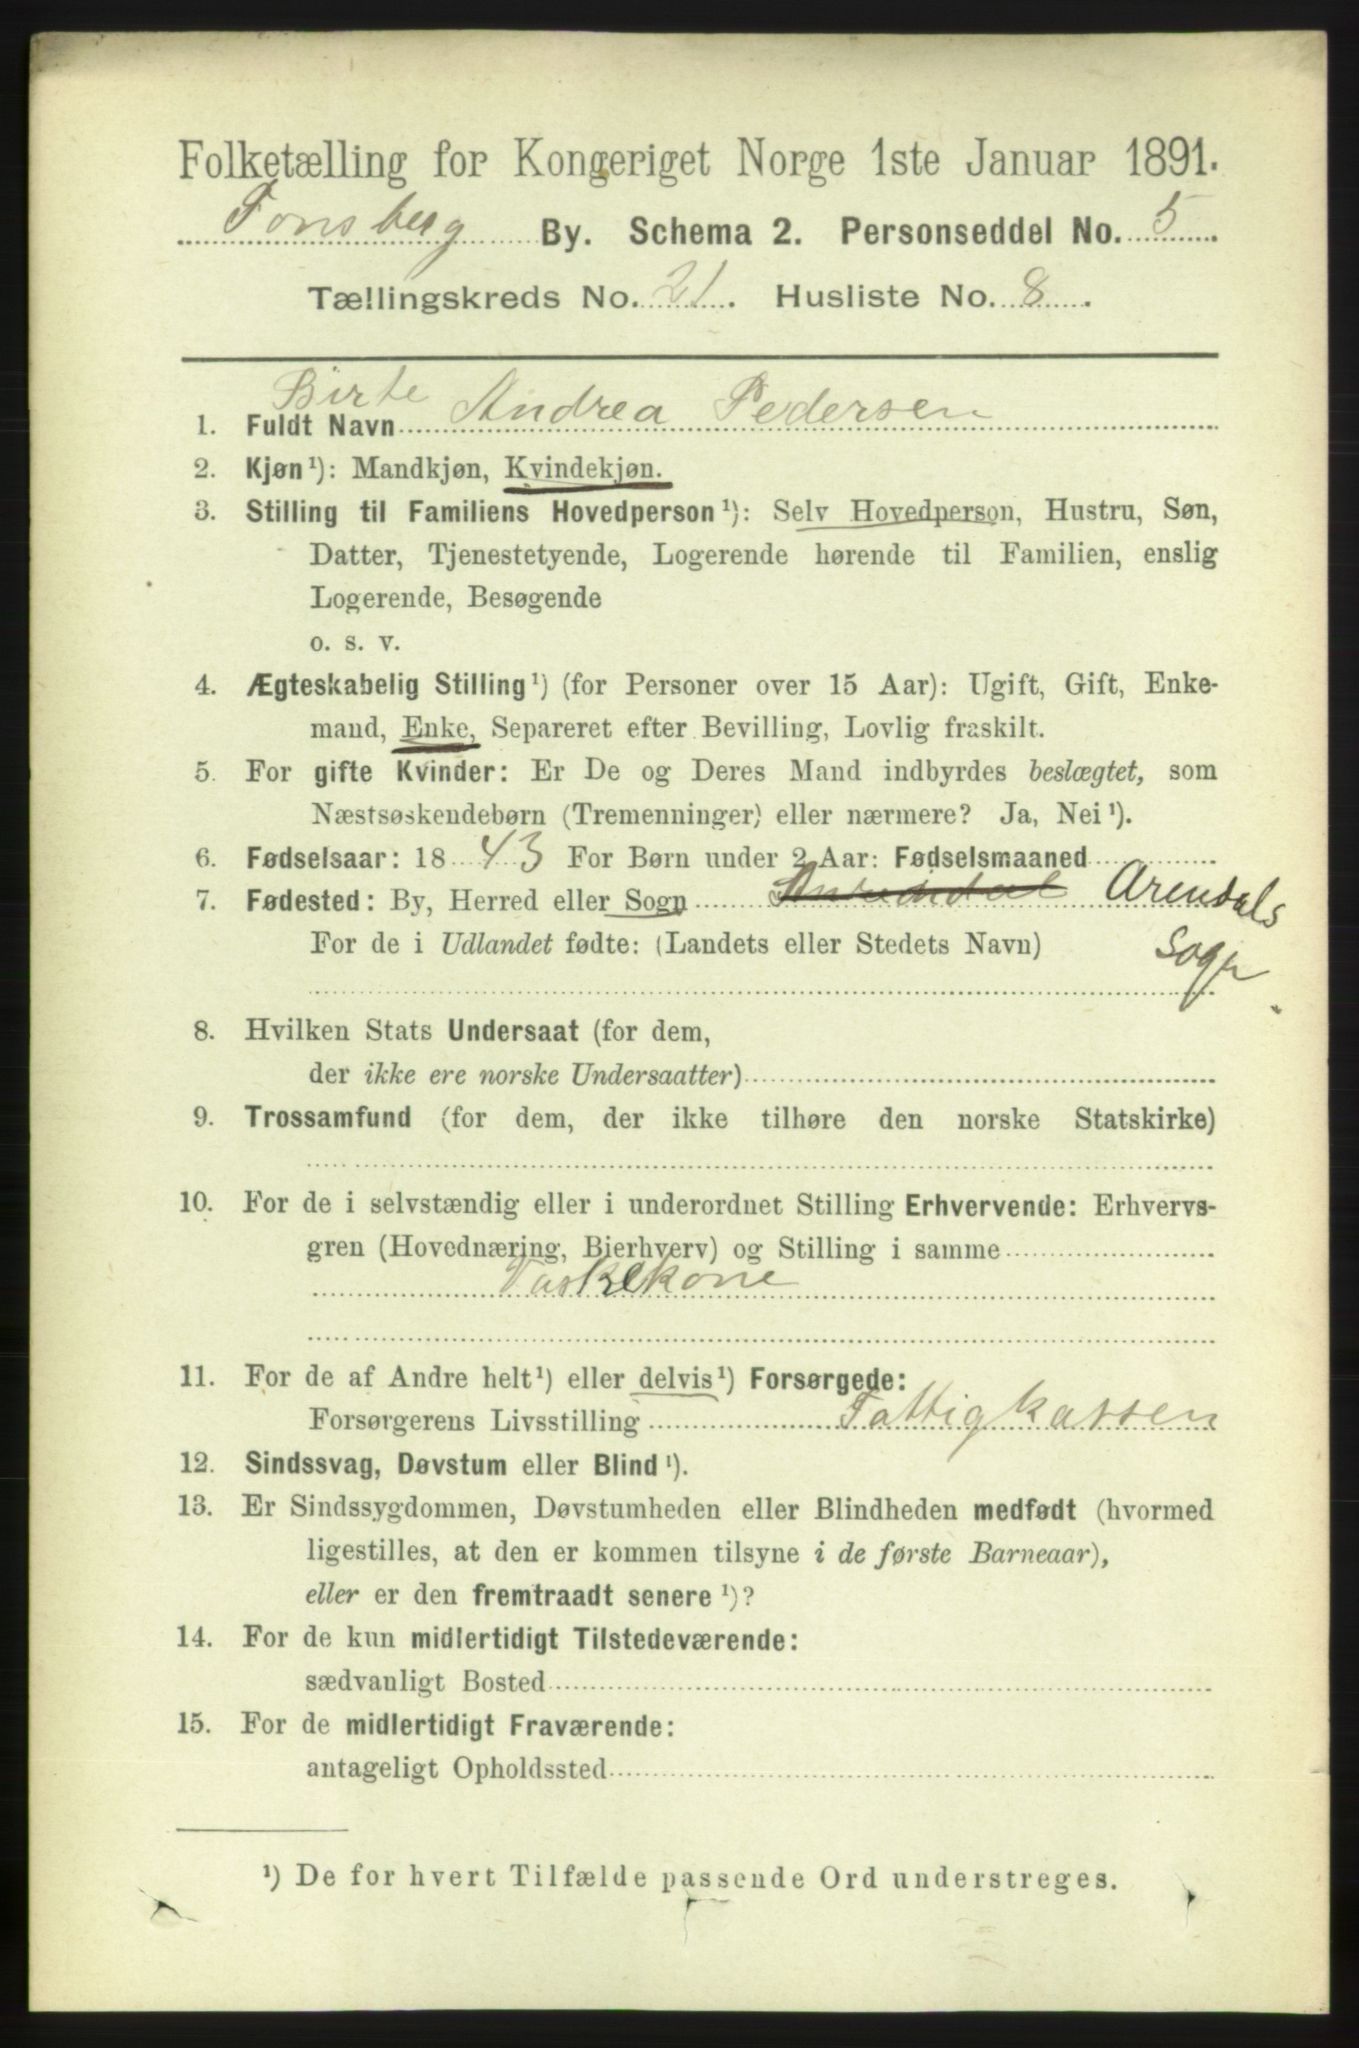 Folketælling for Kongeriget Norge 1ste Januar 1891.
Tonsberg By. Schema 2. Personseddel No. 5.
Tællingskreds No. 21. Husliste No. 8.
Birte
1. Fuldt Navn Andrea Pedersen
2. Kjøn¹): Mandkjøn, Kvindekjøn.
3. Stilling til Familiens Hovedperson¹): Selv Hovedperson, Hustru, Søn,
Datter, Tjenestetyende, Logerende hørende til Familien, enslig
Logerende, Besøgende
o. s. v.
4. Ægteskabelig Stilling¹) (for Personer over 15 Aar): Ugift, Gift, Enke-
mand, Enke, Separeret efter Bevilling, Lovlig fraskilt.
5. For gifte Kvinder: Er De og Deres Mand indbyrdes beslægtet, som
Næstsøskendebørn (Tremenninger) eller nærmere? Ja, Nei¹).
6. Fødselsaar: 18 43 For Børn under 2 Aar: Fødselsmaaned
7. Fødested: By, Herred eller Sogn Arendals
For de i Udlandet fødte: (Landets eller Stedets Navn) Sogn
8. Hvilken Stats Undersaat (for dem,
der ikke ere norske Undersaatter)
9. Trossamfund (for dem, der ikke tilhøre den norske Statskirke)
10. For de i selvstændig eller i underordnet Stilling Erhvervende: Erhvervs-
gren (Hovednæring, Bierhverv) og Stilling i samme
Vaskekone
11. For de af Andre helt¹) eller delvis¹) Forsørgede:
Forsørgerens Livsstilling Fattigkassen
12. Sindssvag, Døvstum eller Blind¹).
13. Er Sindssygdommen, Døvstumheden eller Blindheden medfødt (hvormed
ligestilles, at den er kommen tilsyne i de første Barneaar),
eller er den fremtraadt senere¹)?
14. For de kun midlertidigt Tilstedeværende:
sædvanligt Bosted
15. For de midlertidigt Fraværende:
antageligt Opholdssted
¹) De for hvert Tilfælde passende Ord understreges.